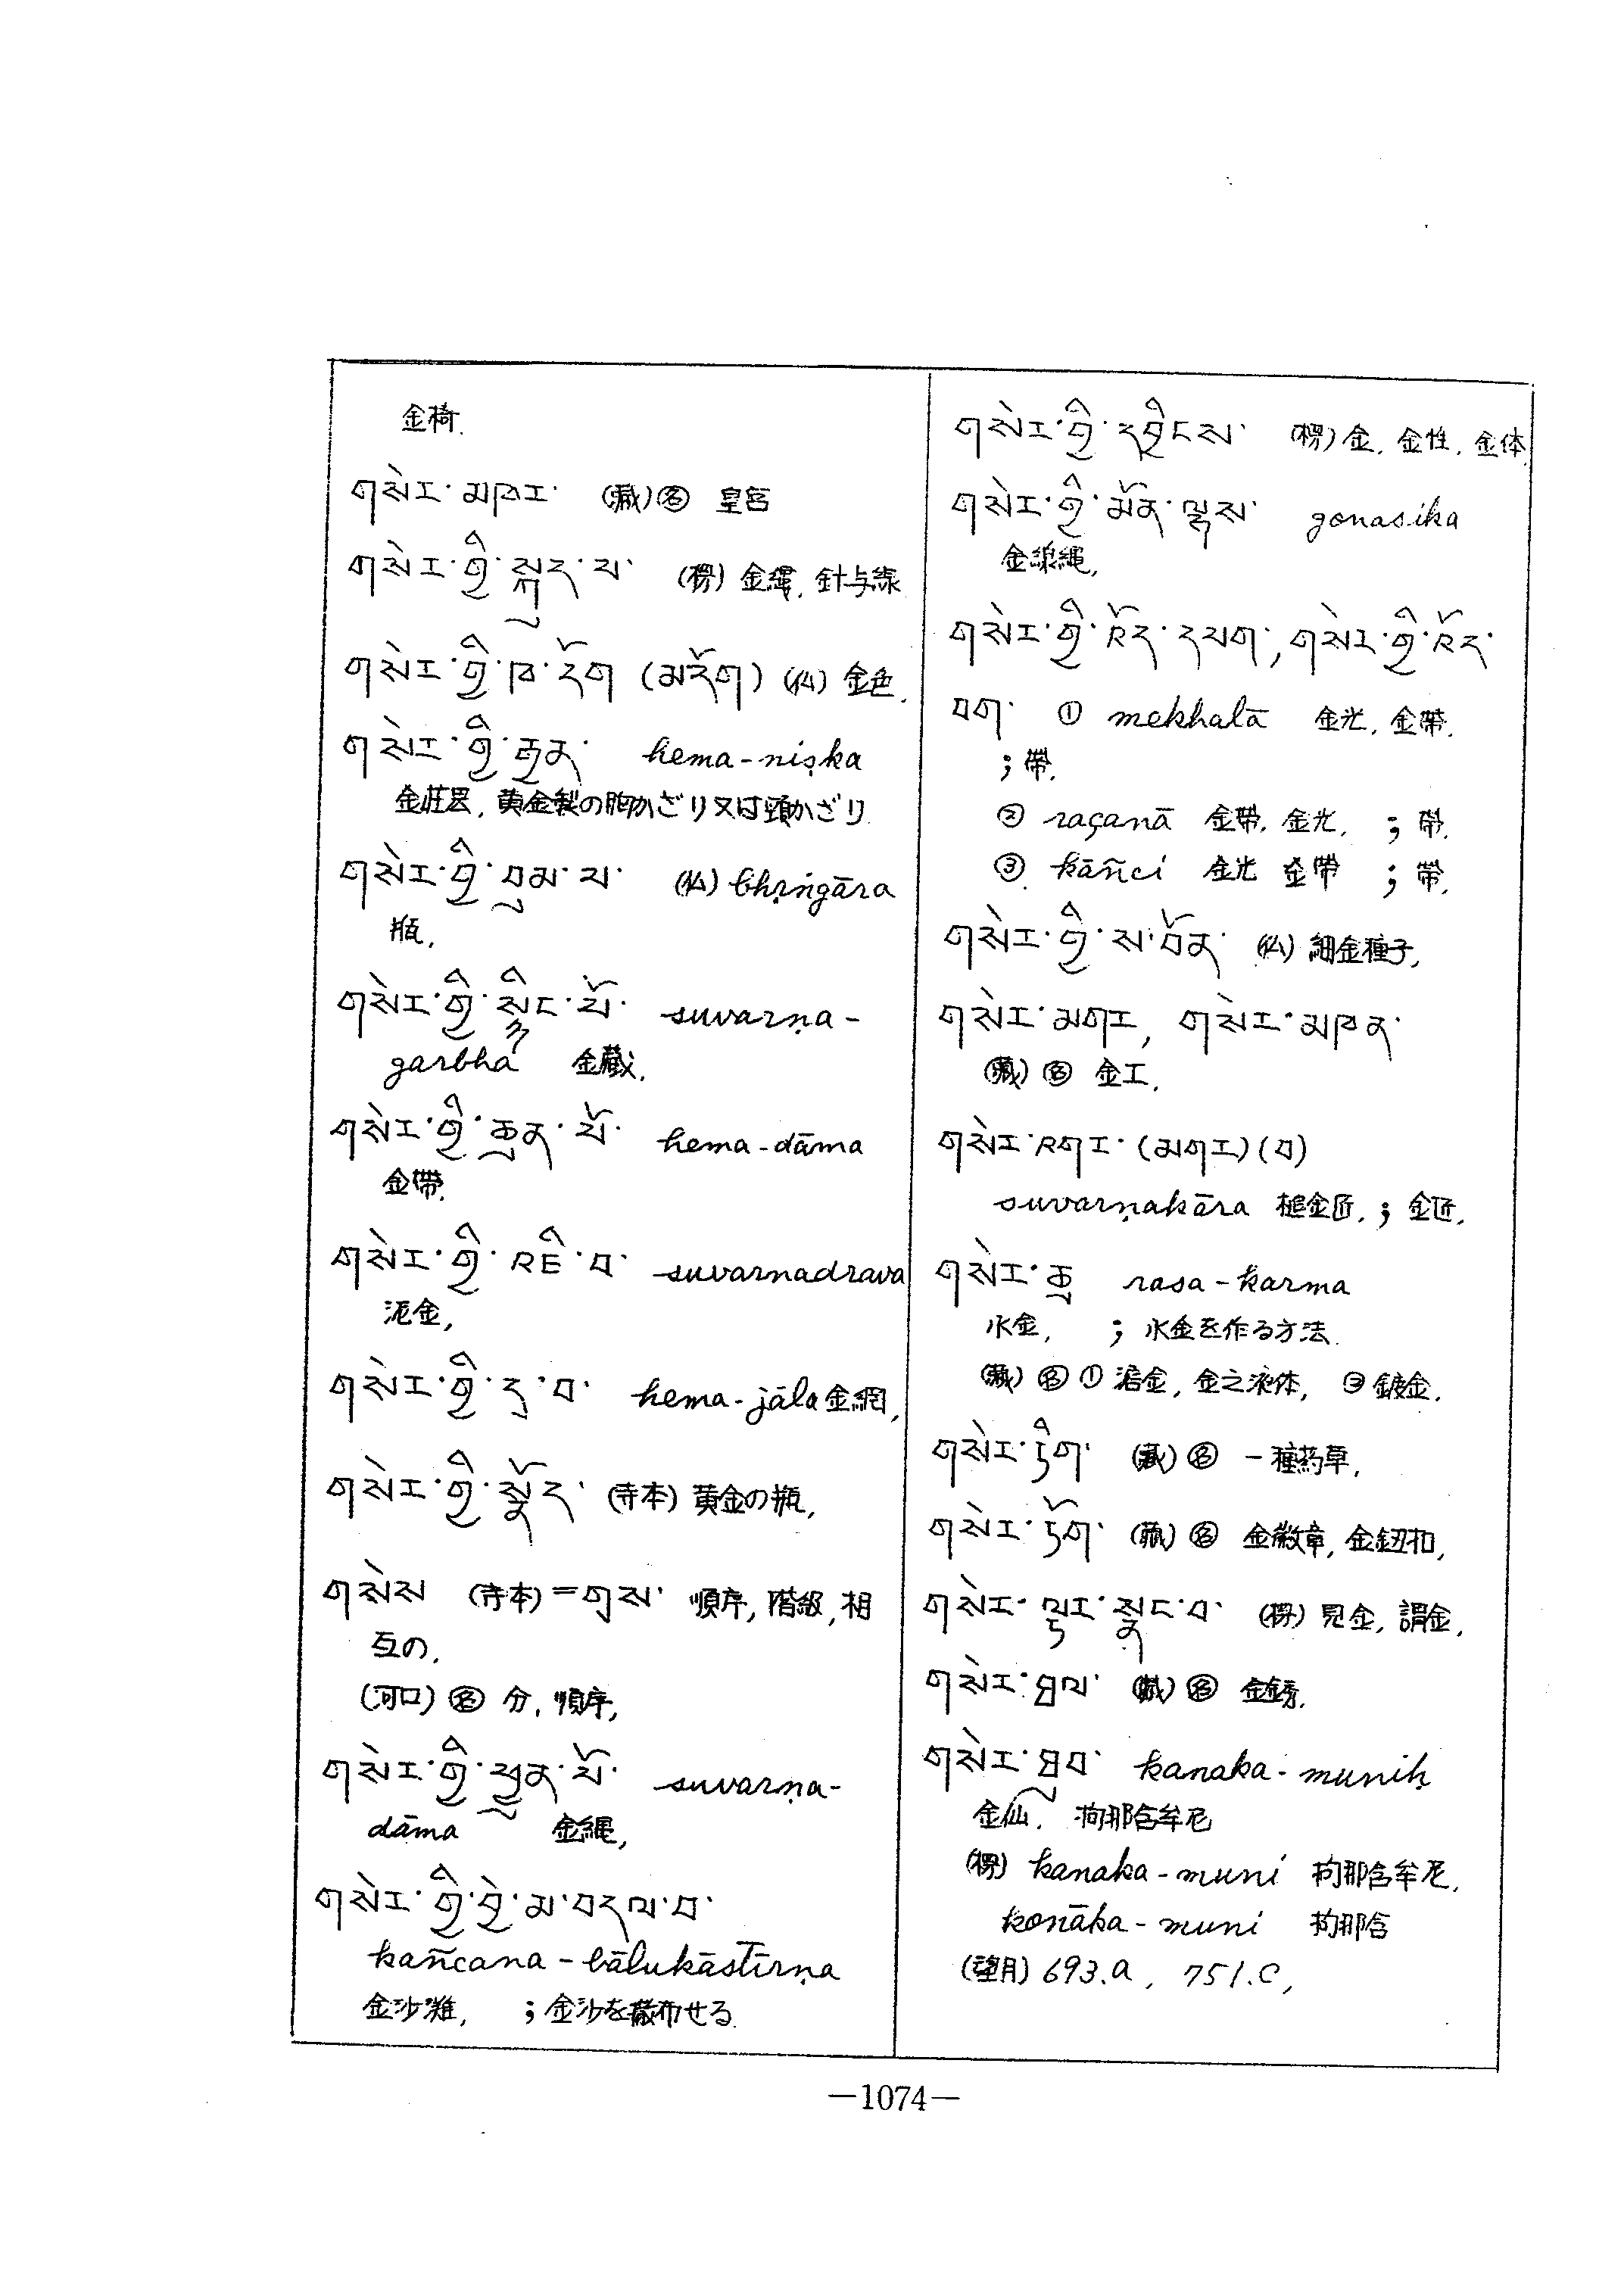 金椅.
གསེར་མཁར་ (藏)㊔ 皇宮
གསེར་གྱི་སྐུད་པ་ (楞) 金縷, 針与線
གསེར་གྱི་ཁ་དོག (མདོག) (仏) 金色.
གསེར་གྱི་རྒྱན་ hema-niṣka
金荘厳, 黄金製の胸かざり又は頸かざり
གསེར་གྱི་བུམ་པ་ (仏) bhṛngāra
瓶,
གསེར་གྱི་སྙིང་པོ་ suvarṇa-
garbha 金藏,
གསེར་གྱི་ཆུན་པོ་ hema-dāma
金帶.
གསེར་གྱི་འཇི་བ་ suvarnadrava
泥金,
གསེར་གྱི་དྲ་བ་ hema-jāla 金網,
གསེར་གྱི་སྣོད་ (寺本) 黄金の瓶,
གསེས (寺本) = གུས་ 順序, 階級, 相
互の,
(河口) ㊔ 分, 順序,
གསེར་གྱི་ཕྱུན་པོ་ suvarṇa-
dāma 金縄,
གསེར་གྱི་བྱེ་མ་བདལ་བ་
kañcana-bālukāstīrṇa
金沙灘, ; 金沙を散布せる.
གསེར་གྱི་དབྱིངས་ (楞) 金, 金性, 金体,
གསེར་གྱི་མོན་ལྷས་ gonasika
金線縄,
གསེར་གྱི་འོད་དཔག་, གསེར་གྱི་འོད་
པག་ ① mekhalā 金光, 金帶.
; 帶.
② raçanā 金帶, 金光, ; 帶.
③ kāñci 金光 金帶 ; 帶,
གསེར་གྱི་ས་བོན་ (仏) 細金種子,
གསེར་མགར, གསེར་མཁན་
(藏) ㊔ 金工,
གསེར་འགར་(མགར)(བ)
suvarṇakāra 槌金匠, ; 金匠,
གསེར་ཆུ rasa-karma
水金, ; 水金を作る方法.
(藏) ㊔ ① 溶金, 金之液体, ② 鍍金,
གསེར་ཏིག་ (藏) ㊔ 一種药草,
གསེར་ཏོག་ (藏) ㊔ 金徽章, 金鈕扣,
གསེར་ལྟར་སྣང་བ་ (楞) 見金, 謂金,
གསེར་ཐལ་ (藏) ㊔ 金銹,
གསེར་ཐུབ་ kanaka-muniḥ
金仙, 拘那含牟尼
(楞) kanaka-muni 拘那含牟尼,
konāka-muni 拘那含
(望月) 693.a, 751.c,
—1074—